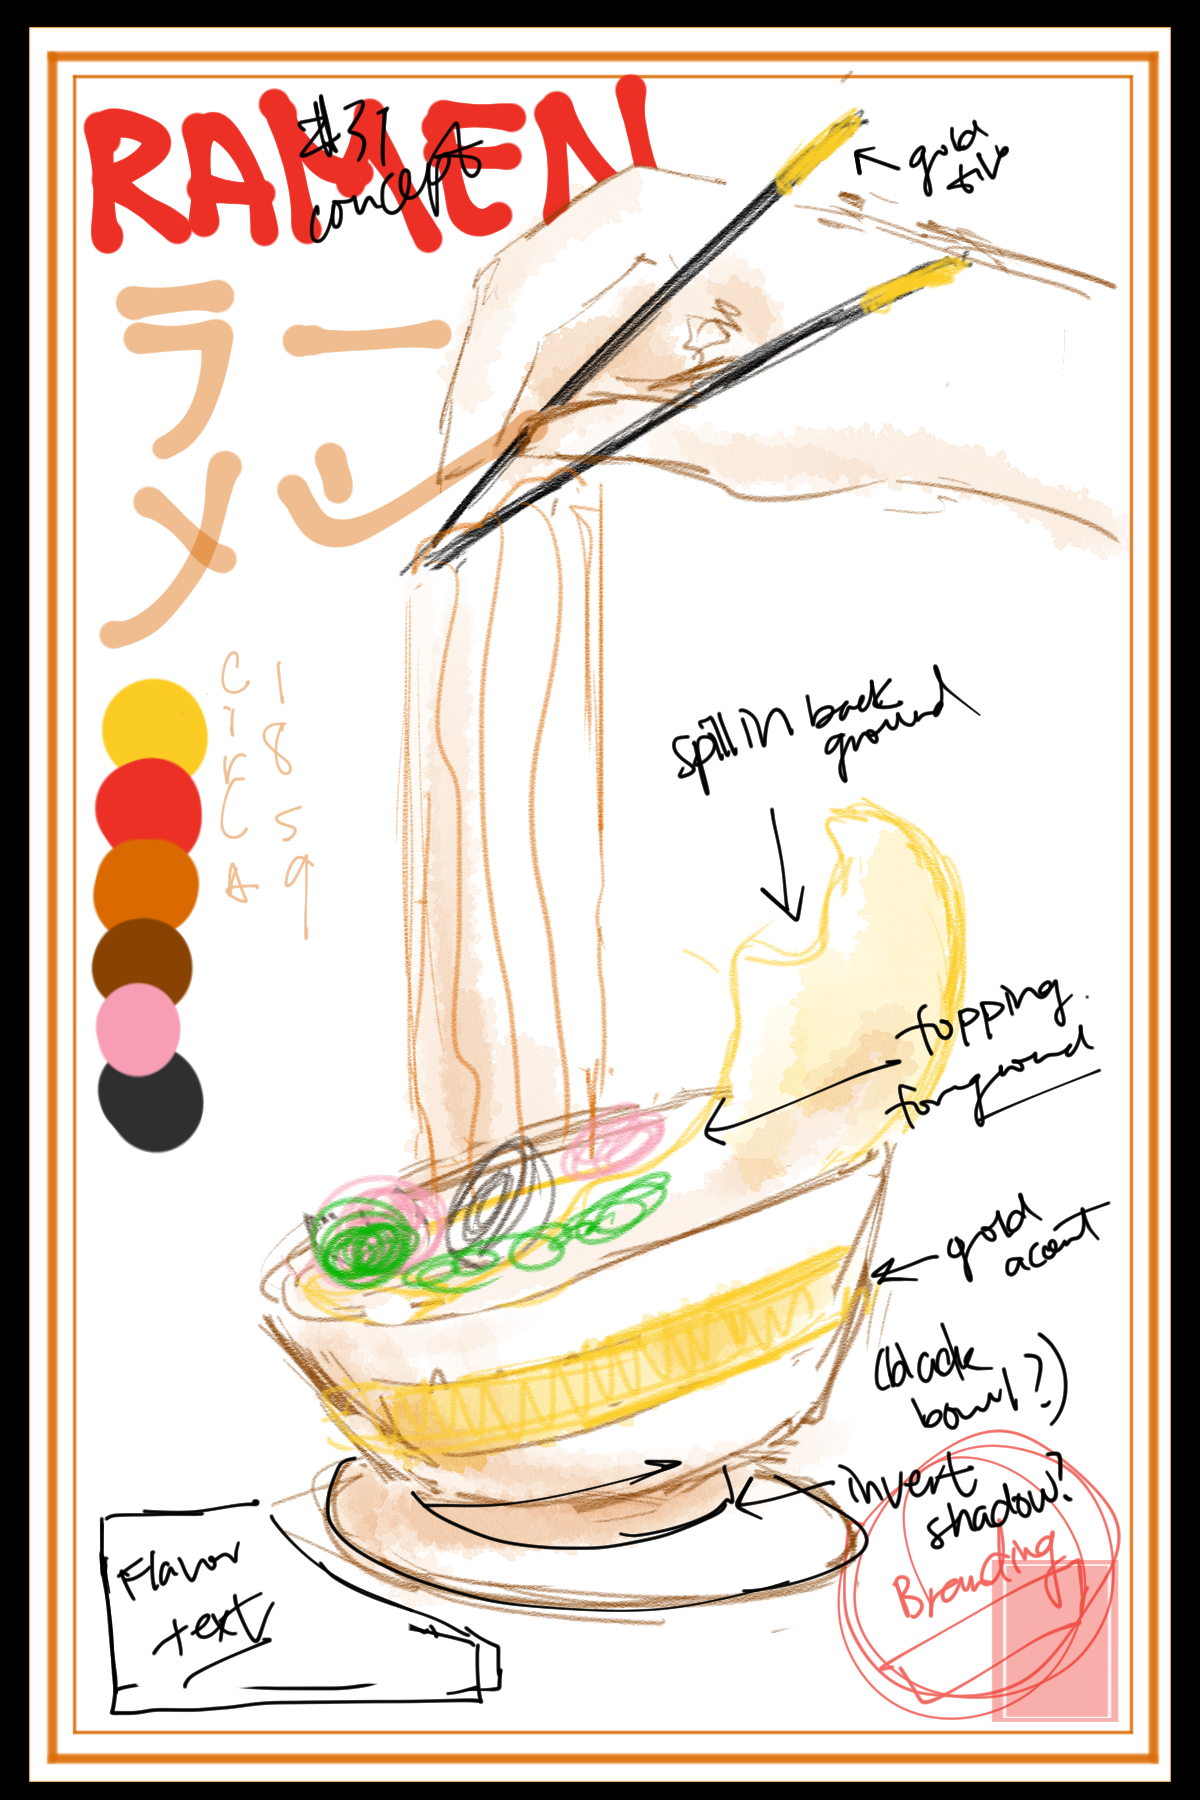 RAMEN
#31
concept
ラー
メン
CIRCA
1859
gold
spill in back
ground
topping
foreground
gold
accent
(black
bowl?)
invert
shadow?
Branding
Flavor
text